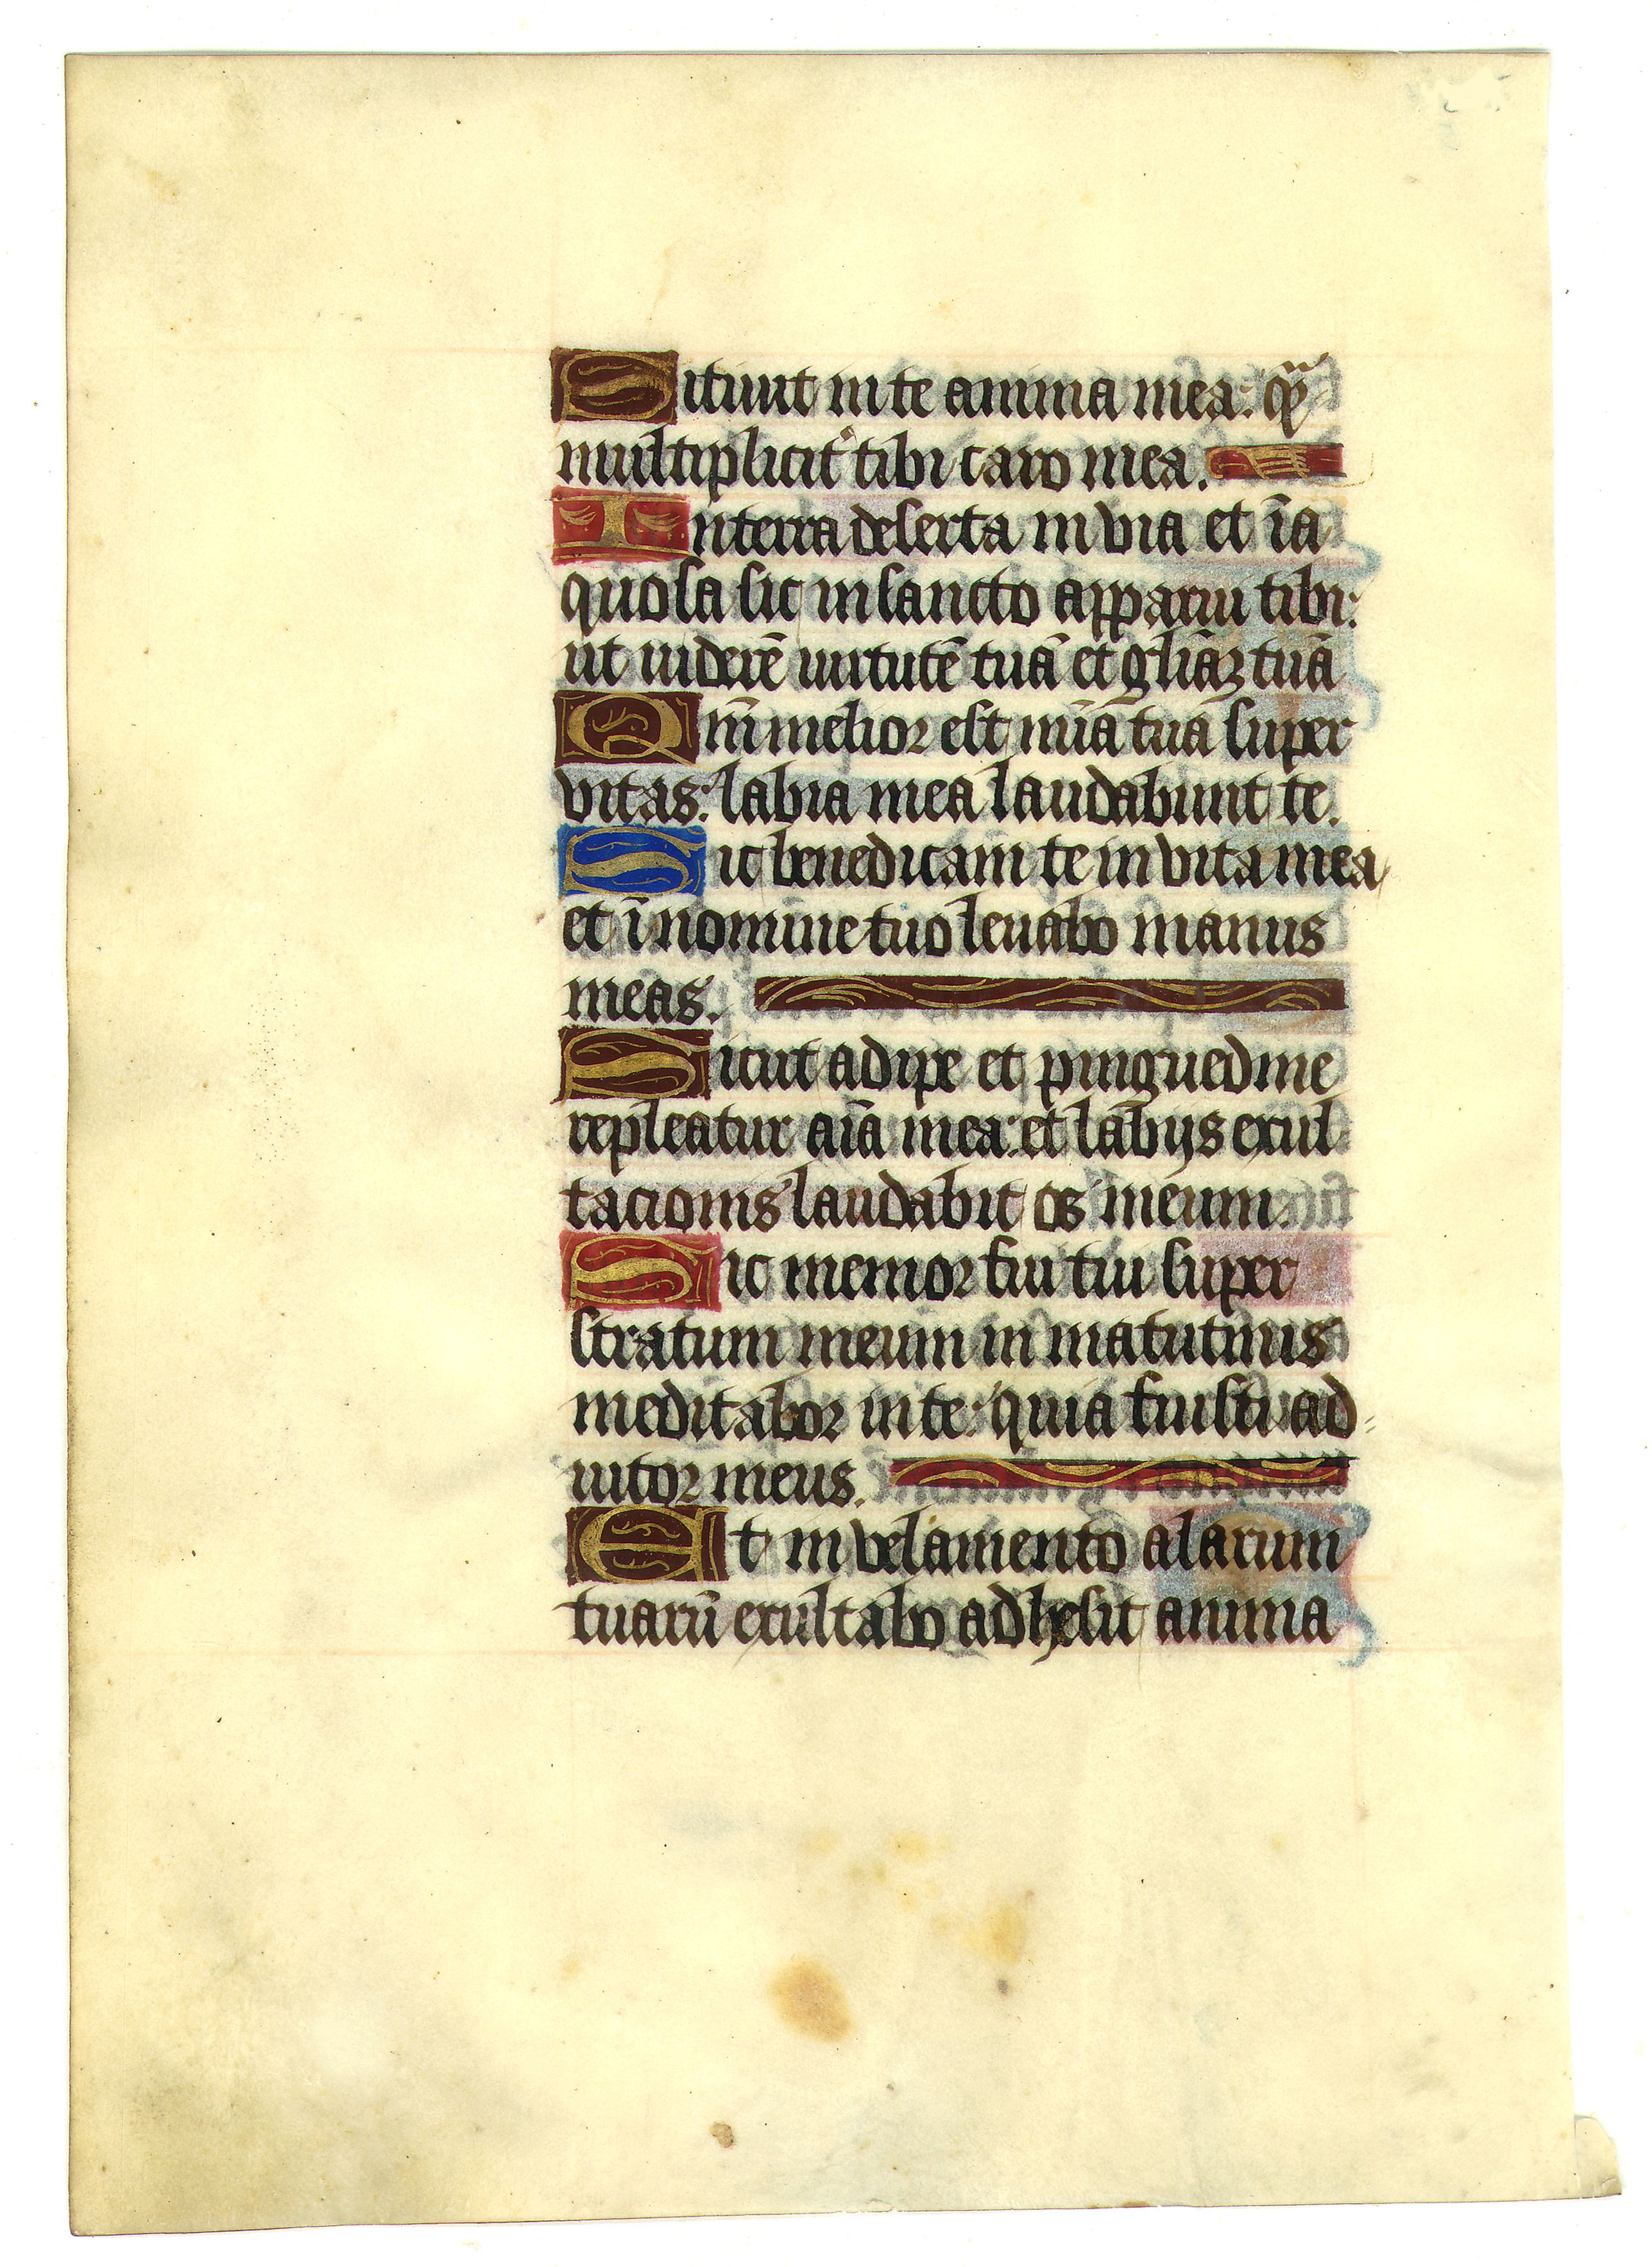 Sitiuit in te anima mea: qͣ
multiplicit̾ tibi caro mea.
In terra deserta inuia et īa
quosa sic in sancto apparui tibi:
ut uiderē uirtutē tuā et gl̄iāʒ tuā
Qm̄ melior est mīa tua super
vitas: labia mea laudabunt te.
Sic benedicam te in vita mea
et ī nomine tuo leuabo manus
meas.
Sicut adipe et pinguedine
repleatur aīa mea: et labijs exul
tacionis laudabit os meum.
Sic memor fui tui super
stratum meum in matutinis
meditabor in te: quia fuisti ad
iutor meus.
Et in velamento alarum
tuarū exultabo adhesit anima